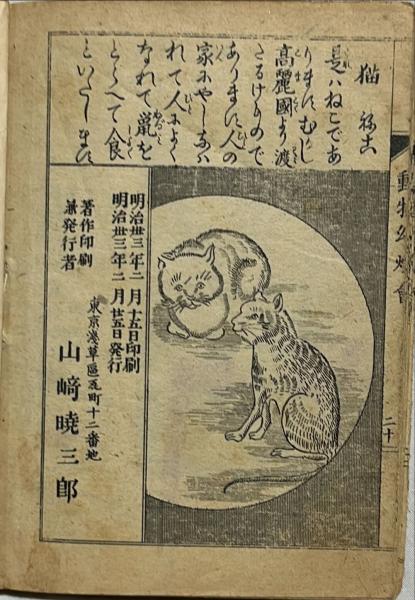 動物幻燈會
二十
猫 ねこ
是ハねこであ
りますむかし
高麗國より渡
たるけもので
あります人の
家にやしなハ
れて人によく
なれて鼠を
とらへて食
といたします
明治卅三年二月十五日印刷
明治卅三年二月廿五日発行
著作印刷
兼発行者
東京浅草區瓦町十二番地
山﨑暁三郎